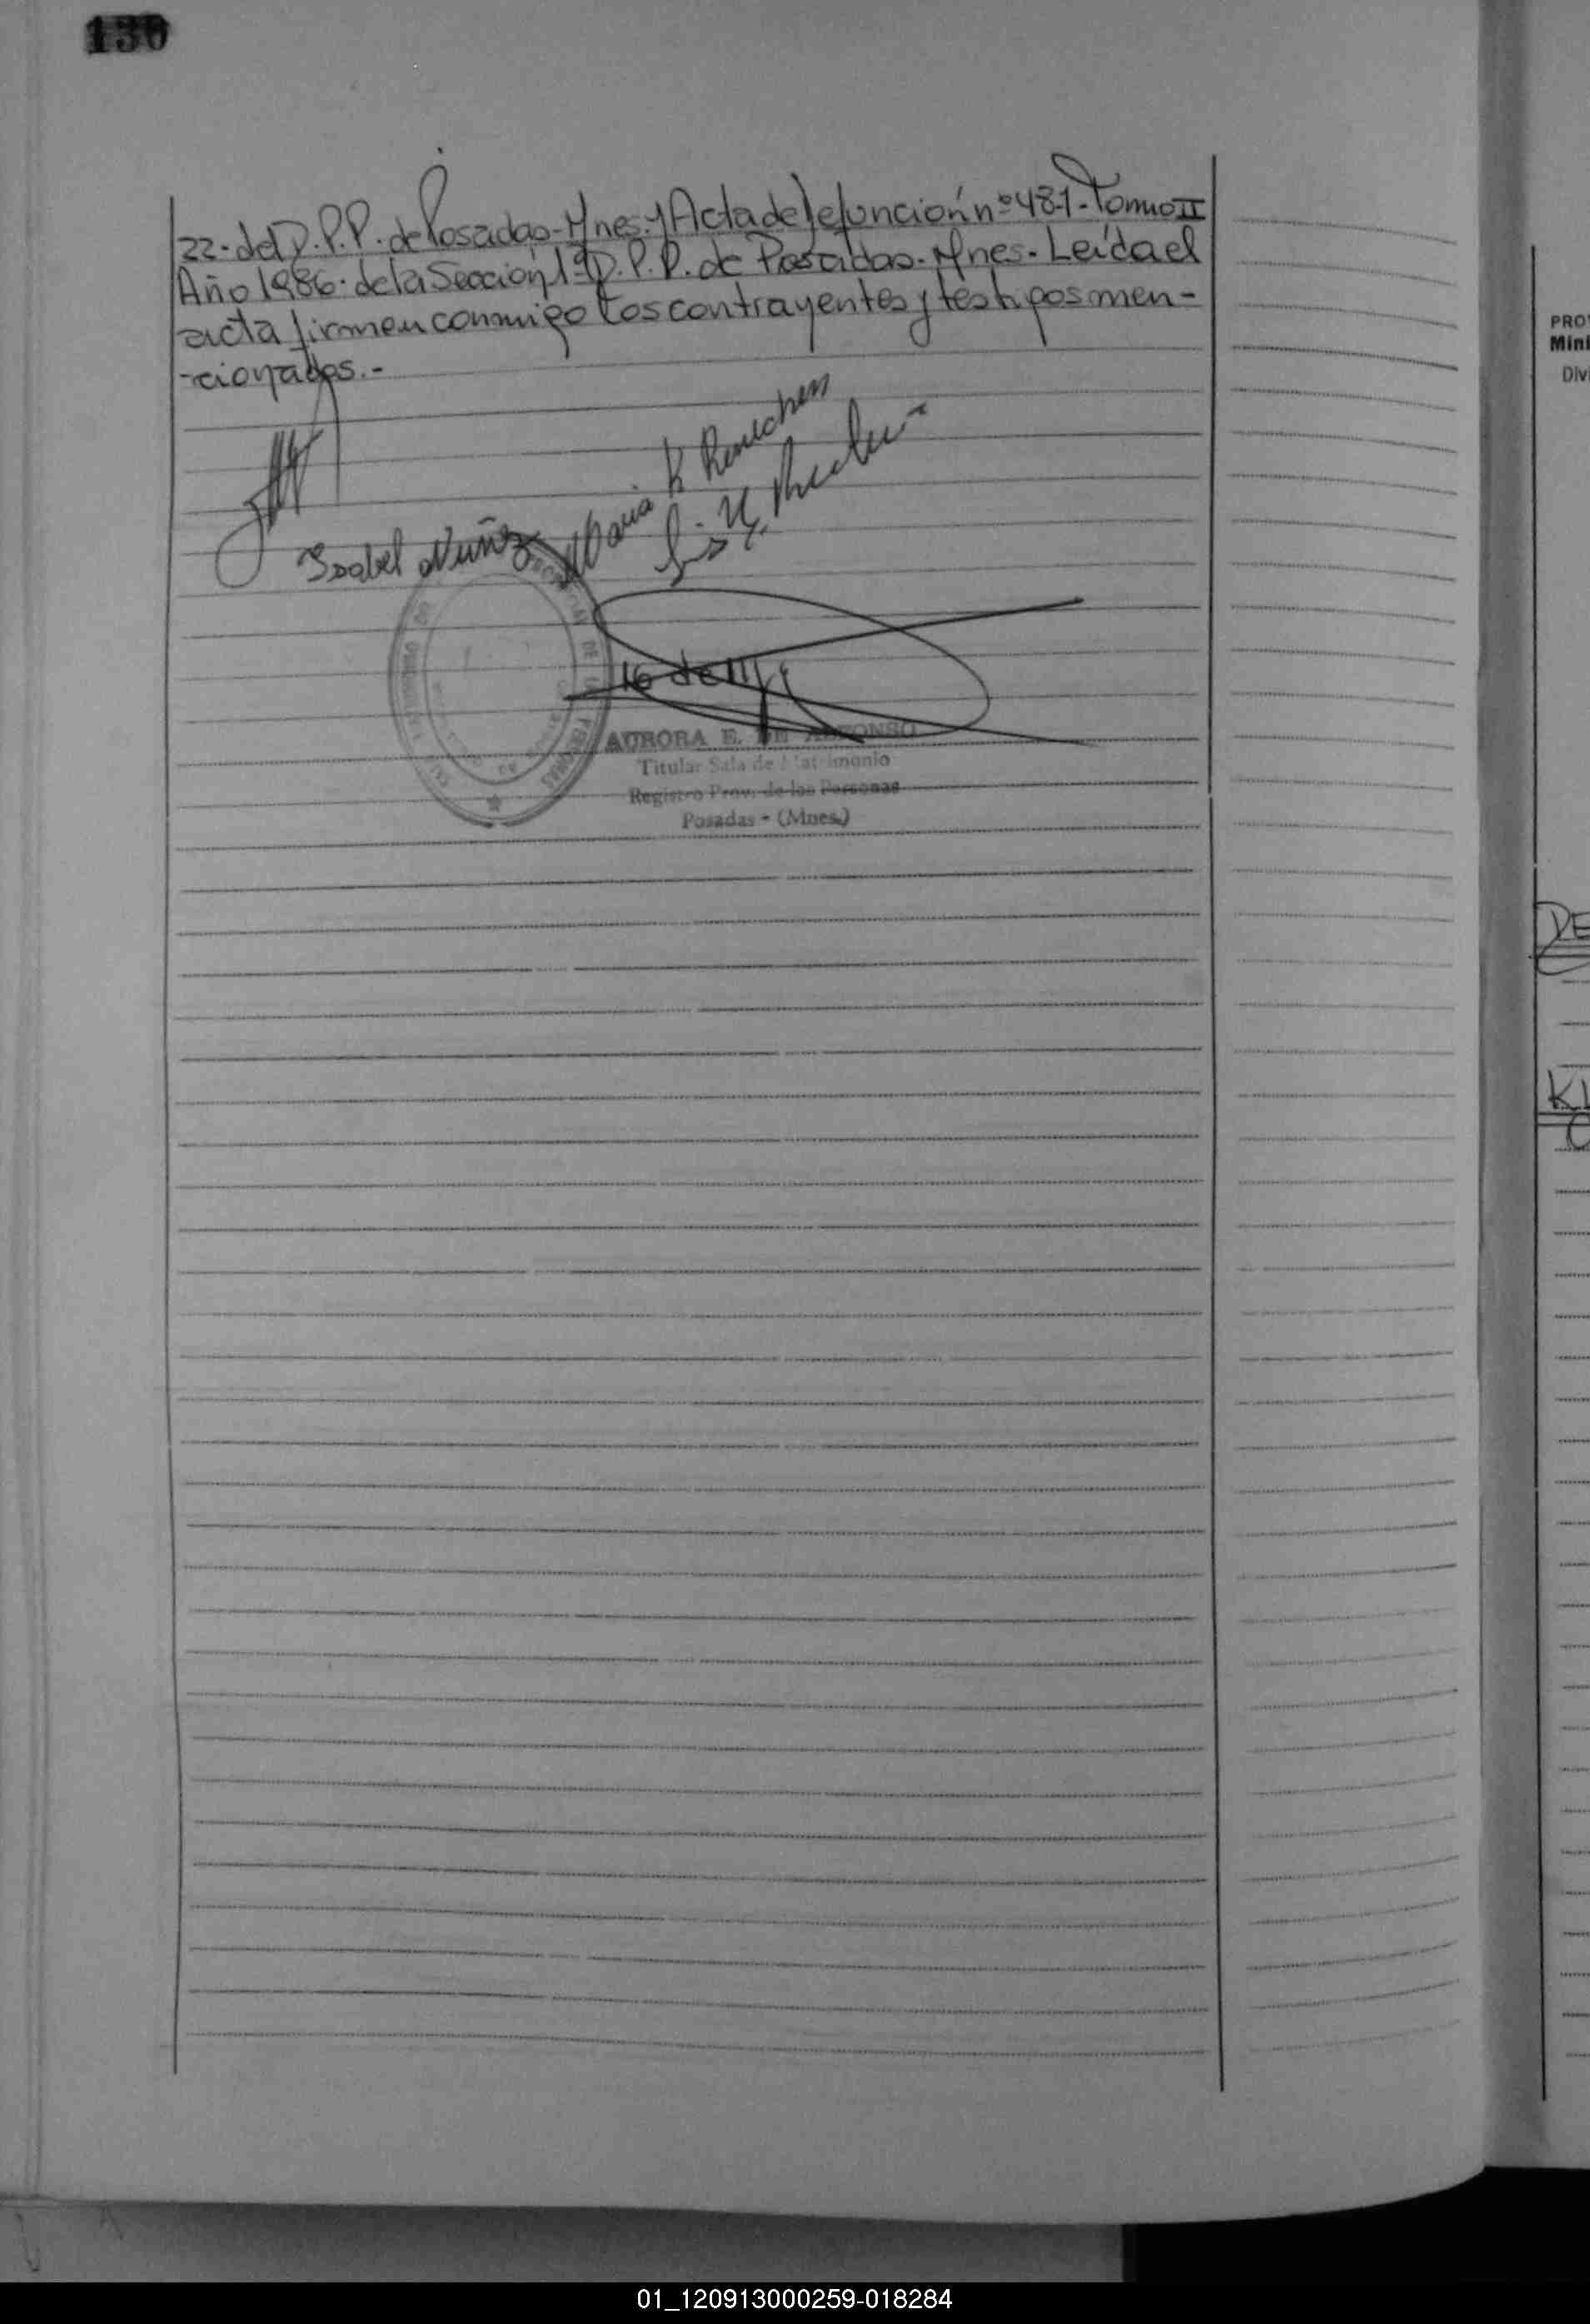 130
22-del D.P.P. de Posadas-Mnes. y Acta de Defunción nº 481-Tomo II
Año 1986. de la Sección 1ª D.P.P. de Posadas-Mnes- Leída el
acta firmen conmigo los contrayentes y testigos men-
-cionados.-
Isabel Nuñez
Maria K
16 de 11
AURORA E. DE ALFONSO
Titular Sala de Matrimonio
Registro Prov. de las Personas
Posadas - (Mnes.)
DE LAS PERSONAS
PRO
Mini
Div
DE
KL
01_120913000259-018284